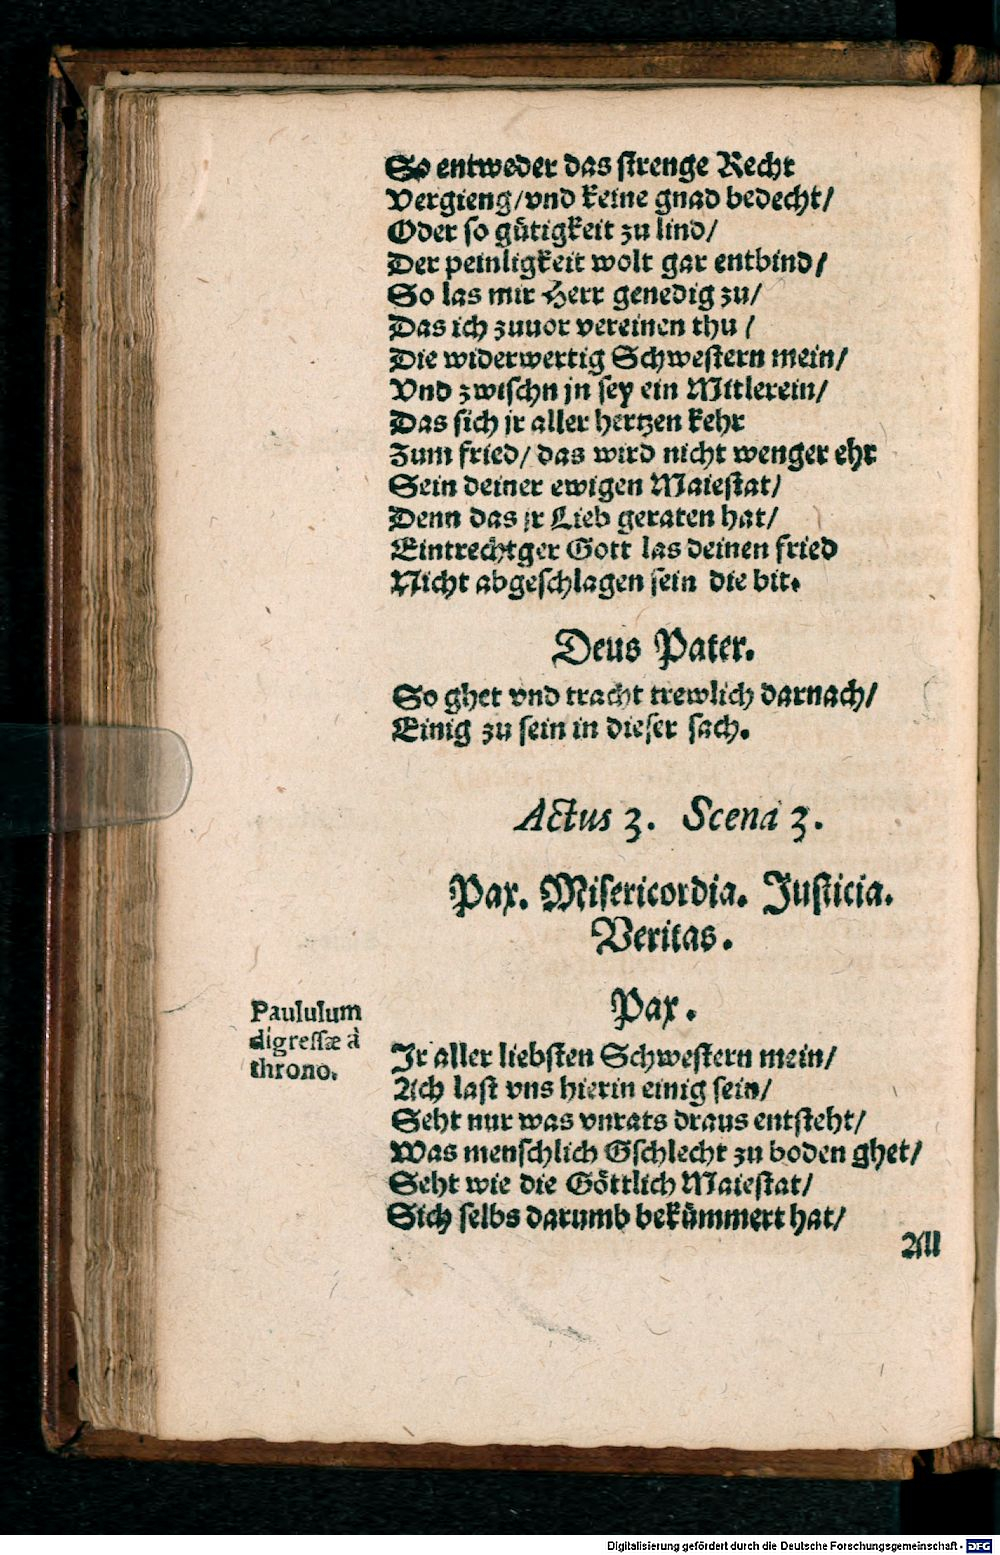 So entweder das ſtrenge Recht
Vergieng/vnd keine gnad bedecht/
Oder ſo gütigkeit zu lind/
Der peinligkeit wolt gar entbind/
So las mir Herr genedig zu/
Das ich zuuor vereinen thu /
Die widerwertig Schweſtern mein/
Vnd zwiſchn jn ſey ein Mitlerein/
Das ſich jr aller hertzen kehr
Zum fried/ das wird nicht wenger ehr
Sein deiner ewigen Maieſtat/
Denn das jr Lieb geraten hat/
Eintrechtger Gott las deinen fried
Nicht abgeſchlagen ſein die bit.
Deus Pater.
So ghet vnd tracht trewlich darnach/
Einig zu ſein in dieſer ſach.
Actus 3. Scena 3.
Pax. Miſericordia. Juſticia.
Veritas.
Pax.
Paululum
digreſſæ à
throno.
Jr aller liebſten Schweſtern mein/
Ach laſt vns hierin einig ſein/
Seht nur was vnrats draus entſteht/
Was menſchlich Gſchlecht zu boden ghet/
Seht wie die Göttlich Maieſtat/
Sich ſelbs darumb bekümmert hat/
All
Digitalisierung gefördert durch die Deutsche Forschungsgemeinschaft - DFG